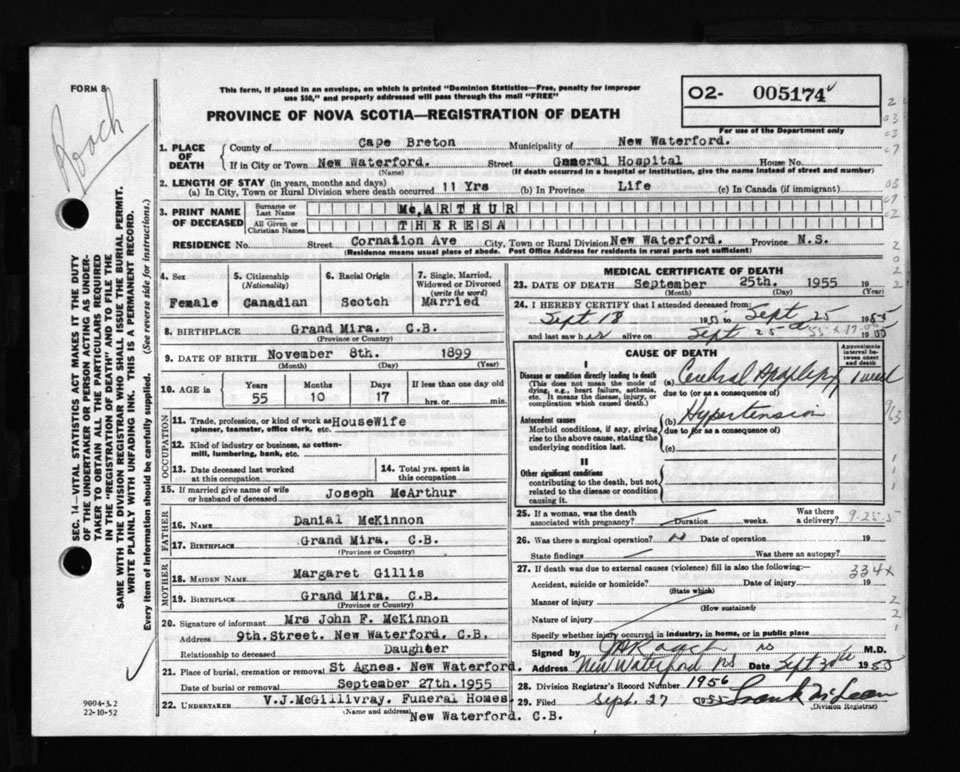 FORM 8
Roach
This form, if placed in an envelope, on which is printed "Dominion Statistics—Free, penalty for improper
use $50," and properly addressed will pass through the mail "FREE"
PROVINCE OF NOVA SCOTIA—REGISTRATION OF DEATH
02- 005174
For use of the Department only
1. PLACE OF DEATH
County of Cape Breton Municipality of New Waterford.
If in City or Town New Waterford. Street Gmmeral Hospital House No.
(Name) (If death occurred in a hospital or institution, give the name instead of street and number)
2. LENGTH OF STAY (in years, months and days)
(a) In City, Town or Rural Division where death occurred 11 Yrs (b) In Province Life (c) In Canada (if immigrant)
3. PRINT NAME OF DECEASED
Surname or Last Name McARTHUR
All Given or Christian Names THERESA
RESIDENCE No. Street Cornation Ave City, Town or Rural Division New Waterford. Province N.S.
(Residence means usual place of abode. Post Office Address for residents in rural parts not sufficient)
4. Sex Female
5. Citizenship (Nationality) Canadian
6. Racial Origin Scotch
7. Single, Married, Widowed or Divorced (write the word) Married
8. BIRTHPLACE Grand Mira. C.B.
(Province or Country)
9. DATE OF BIRTH November 8th. 1899
(Month) (Day) (Year)
10. AGE in Years Months Days If less than one day old
55 10 17 hrs. or min.
OCCUPATION
11. Trade, profession, or kind of work as spinner, teamster, office clerk, etc. HouseWife
12. Kind of industry or business, as cotton-mill, lumbering, bank, etc.
13. Date deceased last worked at this occupation
14. Total yrs. spent in this occupation
15. If married give name of wife or husband of deceased Joseph McArthur
FATHER
16. NAME Danial McKinnon
17. BIRTHPLACE Grand Mira. C.B.
(Province or Country)
MOTHER
18. MAIDEN NAME Margaret Gillis
19. BIRTHPLACE Grand Mira. C.B.
(Province or Country)
20. Signature of informant Mrs John F. McKinnon
Address 9th.Street. New Waterford. C.B.
Relationship to deceased Daughter
21. Place of burial, cremation or removal St Agnes. New Waterford.
Date of burial or removal September 27th.1955
22. UNDERTAKER V.J.McGillivray. Funeral Homes.
(Name and address) New Waterford. C.B.
MEDICAL CERTIFICATE OF DEATH
23. DATE OF DEATH September 25th. 1955 19
(Month) (Day) (Year)
24. I HEREBY CERTIFY that I attended deceased from:
Sept 18 1955 to Sept 25 1955
and last saw her alive on Sept 25 1955
CAUSE OF DEATH
Approximate interval between onset and death
I
Disease or condition directly leading to death
(This does not mean the mode of dying, e.g., heart failure, asthenia, etc. It means the disease, injury, or complication which caused death.)
(a) Cerebral Apoplexy 1 week
due to (or as a consequence of)
Antecedent causes
Morbid conditions, if any, giving rise to the above cause, stating the underlying condition last.
(b) Hypertension
due to (or as a consequence of)
(c)
II
Other significant conditions
contributing to the death, but not related to the disease or condition causing it.
25. If a woman, was the death associated with pregnancy? Duration weeks. Was there a delivery? 9-25-5
26. Was there a surgical operation? N Date of operation 19
State findings Was there an autopsy?
27. If death was due to external causes (violence) fill in also the following:— 334x
Accident, suicide or homicide? Date of injury 19
(State which)
Manner of injury
(How sustained)
Nature of injury
Specify whether injury occurred in industry, in home, or in public place
Signed by Roach M.D.
Address New Waterford NS Date Sept 30th 1955
28. Division Registrar's Record Number 1956
29. Filed Sept. 27 1955 Frank McLean
(Division Registrar)
SEC. 14—VITAL STATISTICS ACT MAKES IT THE DUTY
OF THE UNDERTAKER OR PERSON ACTING AS UNDER-
TAKER TO OBTAIN ALL THE PARTICULARS REQUIRED
IN THE "REGISTRATION OF DEATH" AND TO FILE THE
SAME WITH THE DIVISION REGISTRAR WHO SHALL ISSUE THE BURIAL PERMIT.
WRITE PLAINLY WITH UNFADING INK. THIS IS A PERMANENT RECORD.
Every item of information should be carefully supplied. (See reverse side for instructions.)
9904-3.2
22-10-52